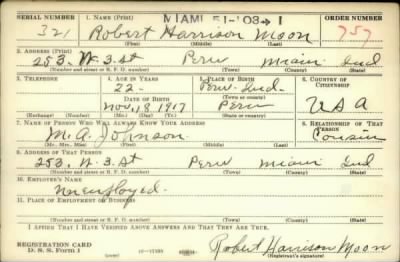 SERIAL NUMBER 1. NAME (Print) MIAMI 51-'03-1 ORDER NUMBER
321 Robert Harrison Moon 757
(First) (Middle) (Last)
2. ADDRESS (Print)
253. W. 3. St Peru Miami Ind
(Number and street or R. F. D. number) (Town) (County) (State)
3. TELEPHONE 4. AGE IN YEARS 5. PLACE OF BIRTH 6. COUNTRY OF CITIZENSHIP
22- Peru. Ind.
DATE OF BIRTH (Town or county)
Nov. 18 1917 Peru U S A
(Exchange) (Number) (Mo.) (Day) (Yr.) (State or country)
7. NAME OF PERSON WHO WILL ALWAYS KNOW YOUR ADDRESS 8. RELATIONSHIP OF THAT PERSON
M. A. Johnson Cousin
(Mr., Mrs., Miss) (First) (Middle) (Last)
9. ADDRESS OF THAT PERSON
253, W. 3. St Peru Miami Ind
(Number and street or R. F. D. number) (Town) (County) (State)
10. EMPLOYER'S NAME
Unemployed.
11. PLACE OF EMPLOYMENT OR BUSINESS
(Number and street or R. F. D. number) (Town) (County) (State)
I AFFIRM THAT I HAVE VERIFIED ABOVE ANSWERS AND THAT THEY ARE TRUE.
REGISTRATION CARD
D. S. S. Form 1 Robert Harrison Moon
(Registrant's signature)